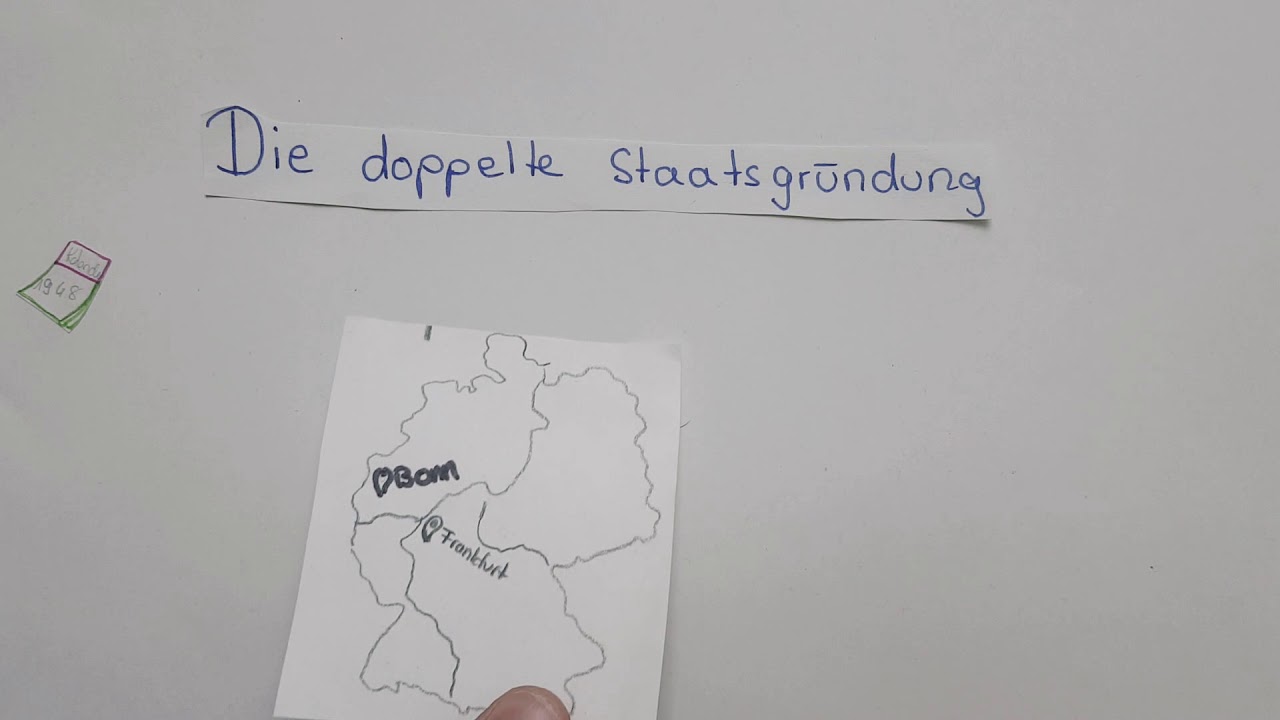 Die doppelte Staatsgründung
1948
Bonn
Frankfurt